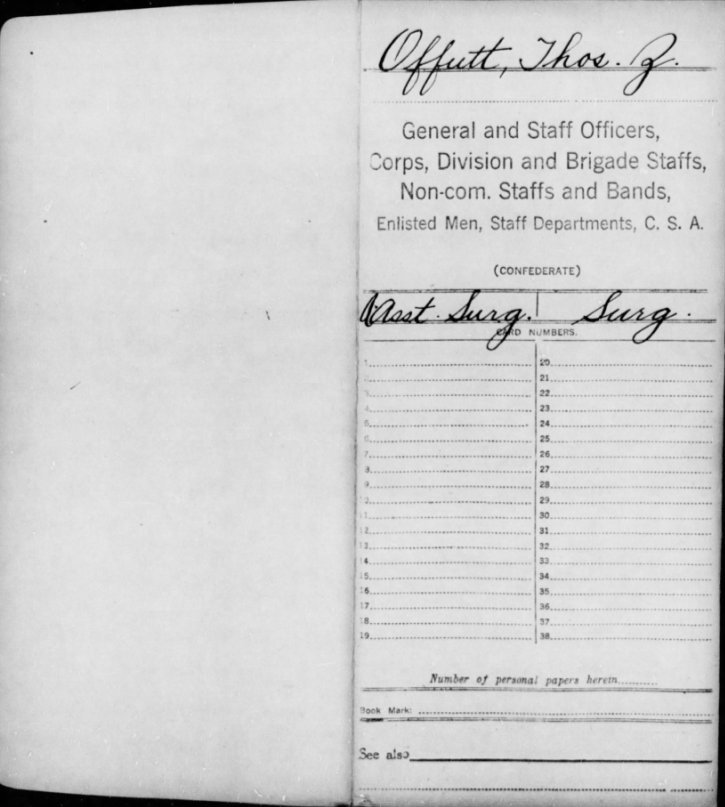 Offutt, Thos. Z.
General and Staff Officers,
Corps, Division and Brigade Staffs,
Non-com. Staffs and Bands,
Enlisted Men, Staff Departments, C. S. A.
(CONFEDERATE)
Asst. Surg. Surg.
CARD NUMBERS.
1 20
2 21
3 22
4 23
5 24
6 25
7 26
8 27
9 28
10 29
11 30
12 31
13 32
14 33
15 34
16 35
17 36
18 37
19 38
Number of personal papers herein
Book Mark:
See also